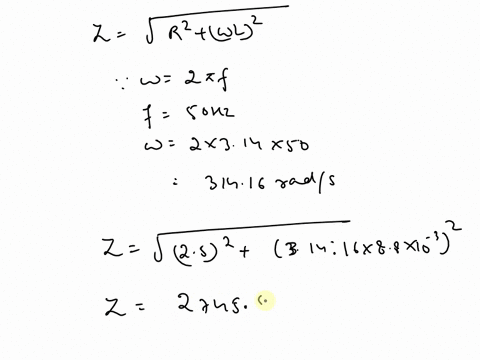 Z = √R²+(ωL)²
∵ ω = 2πf
f = 50Hz
ω = 2×3.14×50
= 314.16 rad/s
Z = √(2.5)² + (314.16×8.8×10⁻³)²
Z = 2745.